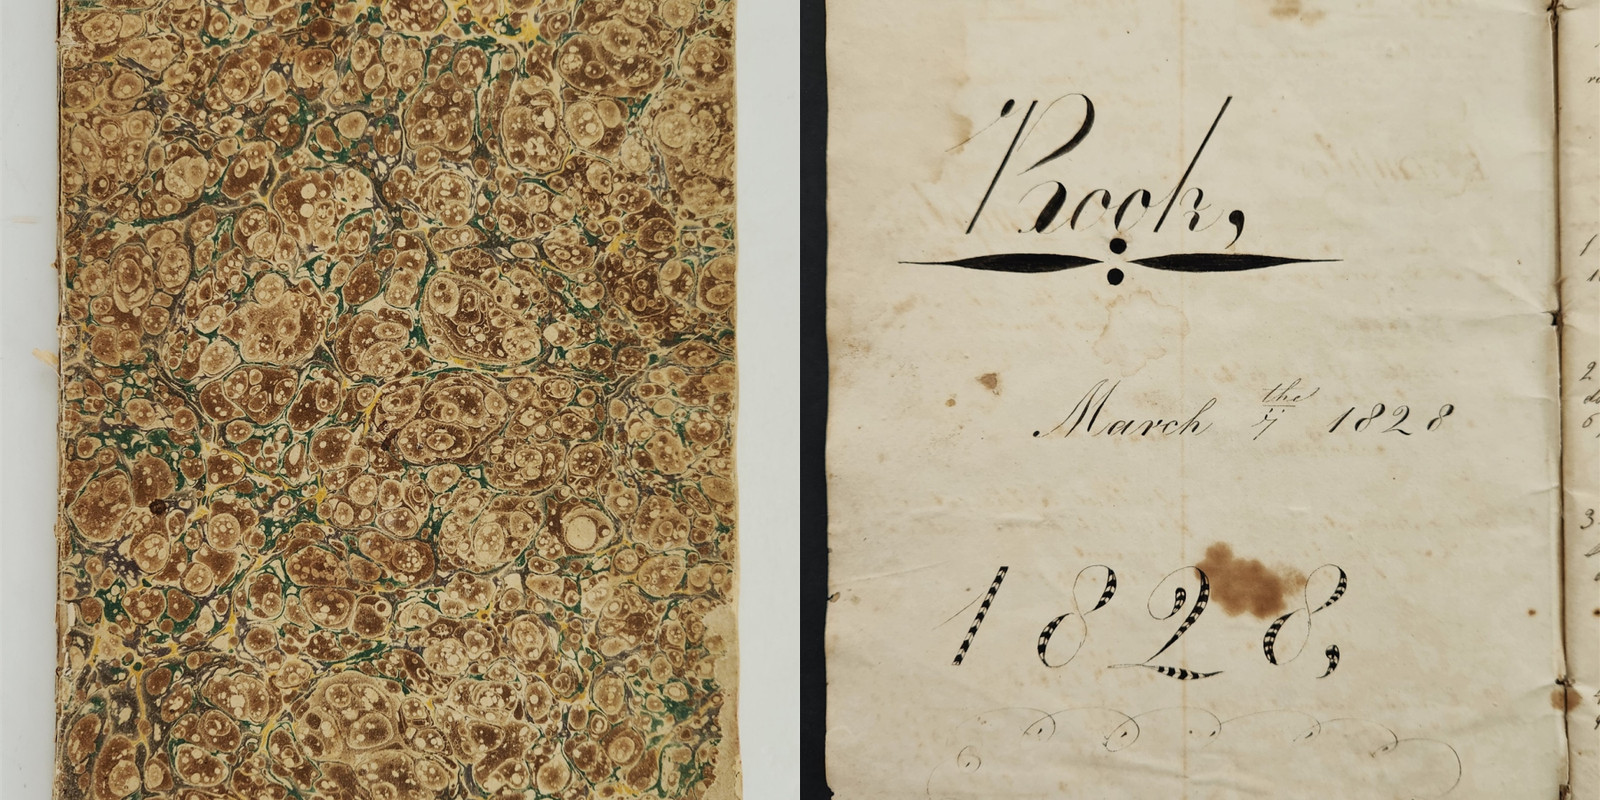 Book,
March 7the 1828
1828,